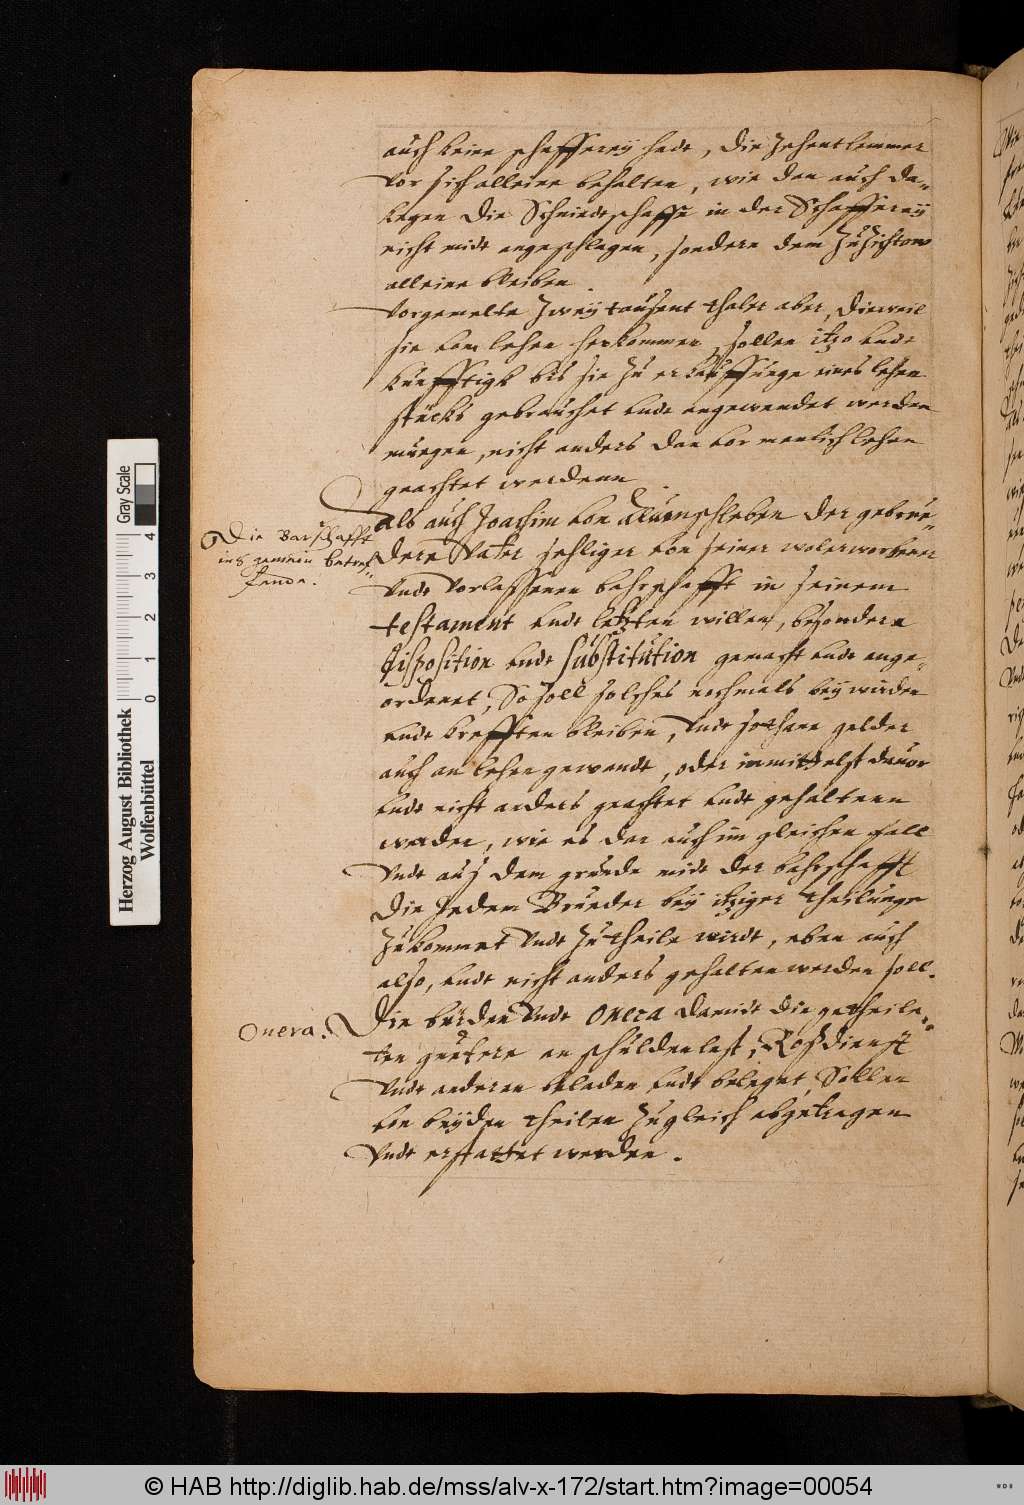 auch keine schefferey hedt, die Zehentlemmer
vor sich alleine behalten, wie dan auch da-
kegen die Schmiedtschaffe in der Schefferey
nicht midt angeschlagen, sondern dem Zuchtow
alleine bleiben.
Vorgemelte Zwey tausent thaler aber, dieweil
sie vom lehen herkommen, sollen itzo undt
kunfftigk bis sie zu erkauffunge eines lehen
stucks gebrauchet undt angewendet werden
mügen, nicht anders dan vor manlich lehen
geachtet werdenn.
Die Barschafft
ins gemein betref-
fende.
Als auch Joachim von Alvenschleben der gebrue-
dere Vater sehliger von seiner wolerworbener
Undt Vorlassenen bahrschafft in seinem
testament undt letzten willen, besondere
disposition undt substitution gemacht undt ange-
ordenet, So soll solches nochmals bey wirden
undt krefften bleiben, Undt sothane gelder
auch an lehen gewendt, oder immittelst davor
undt nicht anders geachtet undt gehaltenn
werden, wie es dan auch im gleichen fall
Undt aus dem grunde midt der bahrschafft
die Jedem Bruder bey itziger theilunge
Zukommet Undt zu theile wirdt, eben auch
also, undt nicht anders gehalten werden soll.
Onera.
Die burden Undt Onera damidt die getheile-
ten guetere an schuldenlast, Rossdienst
Undt anderen beladen undt beleget, Sollen
von beyden theilen zugleich abgetragen
Undt erstattet werden.
Herzog August Bibliothek
Wolfenbüttel
0 1 2 3 4
Gray Scale
© HAB http://diglib.hab.de/mss/alv-x-172/start.htm?image=00054